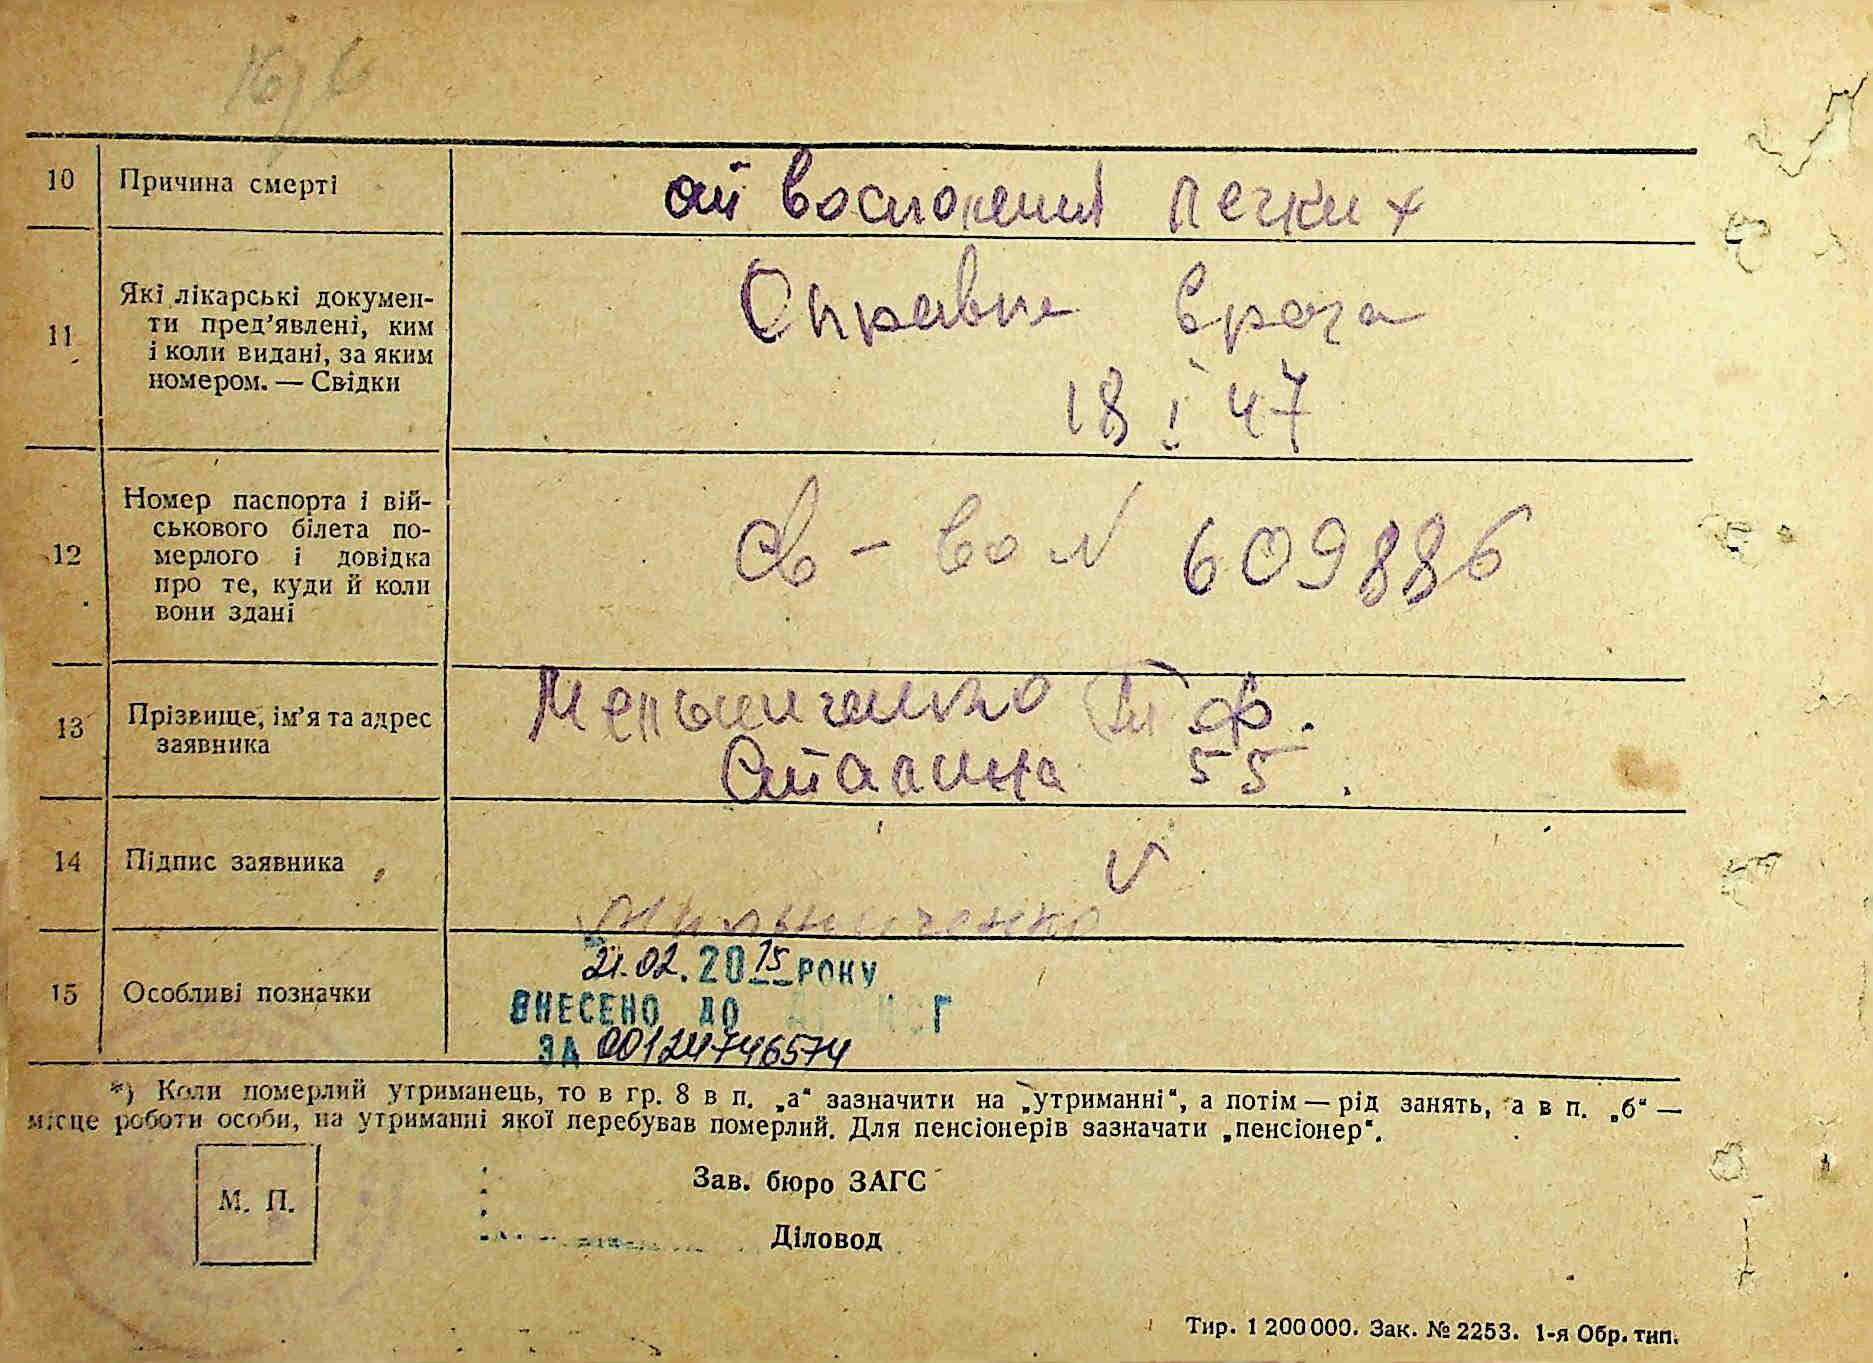 10 Причина смерті от восполения легких
11 Які лікарські докумен-
ти пред’явлені, ким
і коли видані, за яким
номером. — Свідки
Справка врача
18 I 47
12 Номер паспорта і вій-
ськового білета по-
мерлого і довідка
про те, куди й коли
вони здані
Св-во № 609886
13 Прізвище, ім’я та адрес
заявника
Мельниченко Ф.
Сталина 55.
14 Підпис заявника
15 Особливі позначки
21.02.2015 РОКУ
ВНЕСЕНО ДО
ЗА 00124746574
*) Коли померлий утриманець, то в гр. 8 в п. „а“ зазначити на „утриманні“, а потім — рід занять, а в п. „б“ —
місце роботи особи, на утриманні якої перебував померлий. Для пенсіонерів зазначати „пенсіонер“.
М. П.
Зав. бюро ЗАГС
Діловод
Тир. 1 200 000. Зак. № 2253. 1-я Обр. тип.